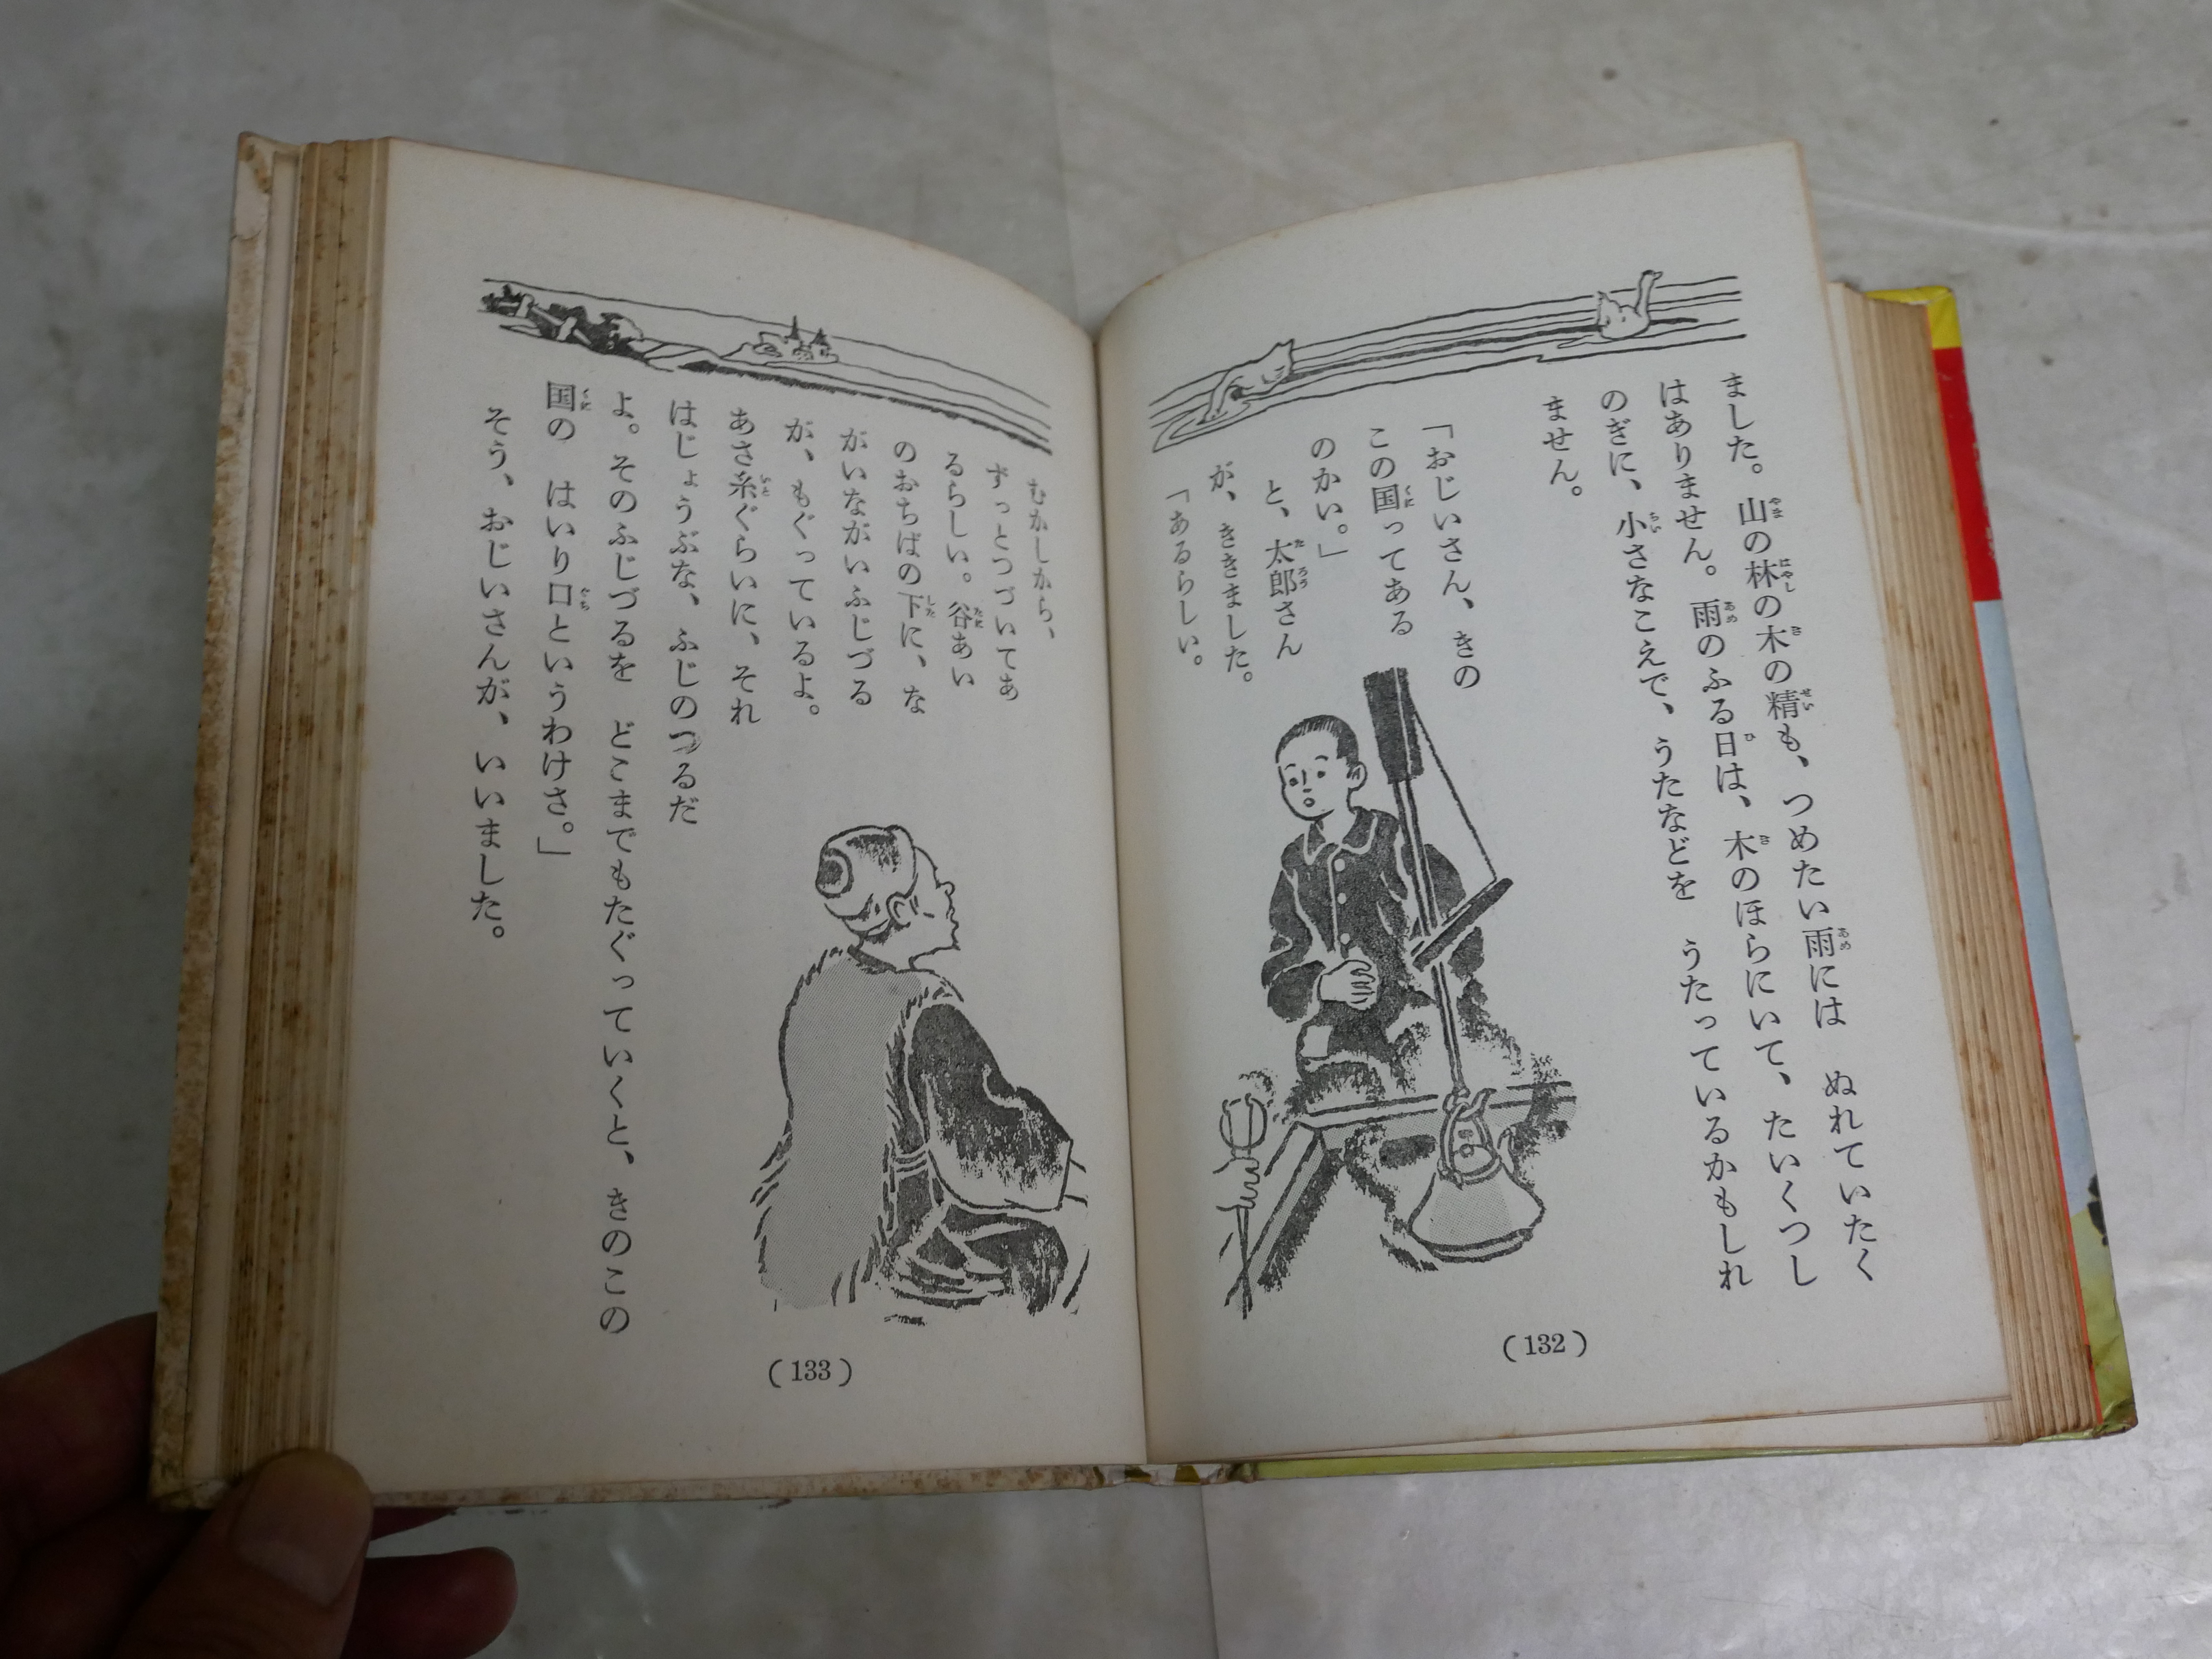 ました。山の林の木の精も、つめたい雨には　ぬれていたく
はありません。雨のふる日は、木のほらにいて、たいくつし
のぎに、小さなこえで、うたなどを　うたっているかもしれ
ません。
「おじいさん、きの
この国ってある
のかい。」
と、太郎さん
が、ききました。
「あるらしい。
(132)
むかしから、
ずっとつづいてあ
るらしい。谷あい
のおちばの下に、な
がいながいふじづる
が、もぐっているよ。
あさ糸ぐらいに、それ
はじょうぶな、ふじのつるだ
よ。そのふじづるを　どこまでもたぐっていくと、きのこの
国の　はいり口というわけさ。」
そう、おじいさんが、いいました。
(133)